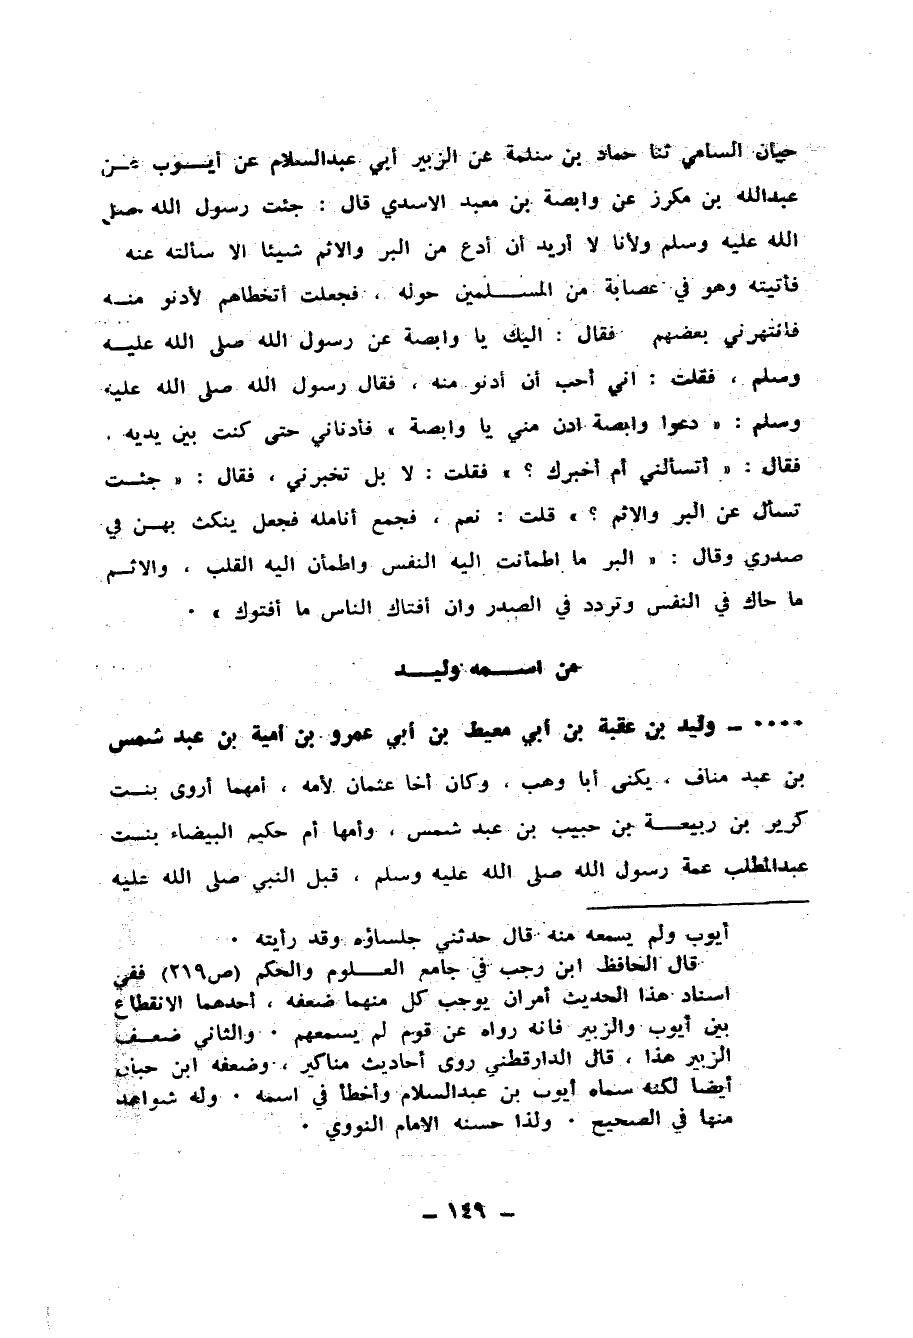 حيان السامي ثنا حماد بن سلمة عن الزبير أبي عبدالسلام عن أيوب عن
عبدالله بن مكرز عن وابصة بن معبد الاسدي قال : جئت رسول الله صلى
الله عليه وسلم ولأنا لا أريد أن أدع من البر والاثم شيئا الا سألته عنه
فأتيته وهو في عصابة من المسلمين حوله ، فجعلت أتخطاهم لأدنو منه
فانتهرني بعضهم فقال : اليك يا وابصة عن رسول الله صلى الله عليه
وسلم ، فقلت : اني أحب أن أدنو منه ، فقال رسول الله صلى الله عليه
وسلم : « دعوا وابصة ادن مني يا وابصة » فأدناني حتى كنت بين يديه .
فقال : « أتسألني أم أخبرك ؟ » فقلت : لا بل تخبرني ، فقال : « جئت
تسأل عن البر والاثم ؟ » قلت : نعم ، فجمع أنامله فجعل ينكث بهن في
صدري وقال : « البر ما اطمأنت اليه النفس واطمأن اليه القلب ، والاثم
ما حاك في النفس وتردد في الصدر وان أفتاك الناس ما أفتوك » ٠
من اسمه وليد
٠٠٠٠ ــ وليد بن عقبة بن أبي معيط بن أبي عمرو بن أمية بن عبد شمس
بن عبد مناف ، يكنى أبا وهب ، وكان أخا عثمان لأمه ، أمهما أروى بنت
كرير بن ربيعة بن حبيب بن عبد شمس ، وأمها أم حكيم البيضاء بنت
عبدالمطلب عمة رسول الله صلى الله عليه وسلم ، قبل النبي صلى الله عليه
أيوب ولم يسمعه منه قال حدثني جلساؤه وقد رأيته ٠
قال الحافظ ابن رجب في جامع العلوم والحكم (ص٢١٩) ففي
اسناد هذا الحديث أمران يوجب كل منهما ضعفه ، أحدهما الانقطاع
بين أيوب والزبير فانه رواه عن قوم لم يسمعهم ٠ والثاني ضعف
الزبير هذا ، قال الدارقطني روى أحاديث مناكير ، وضعفه ابن حبان
أيضا لكنه سماه أيوب بن عبدالسلام وأخطأ في اسمه ٠ وله شواهد
منها في الصحيح ٠ ولذا حسنه الامام النووي ٠
ــ ١٤٩ ــ